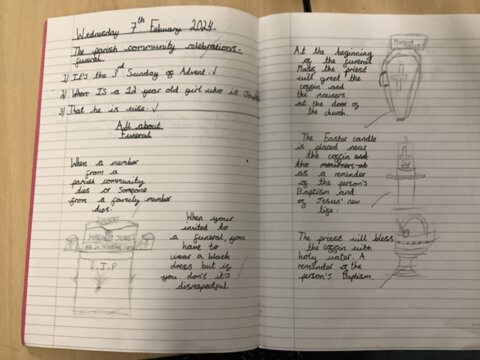 Wednesday 7th Febuary 2024.
The parish community celebrations.
funeral
1) It's the 3rd Sunday of Advent. ✓
2) When IS a 12 year old girl who is
3) That he is wise. ✓
All about
Funeral
When a member
from a
parish community
dies or someone
from a family member
dies.
MARGRET JONES
R.I.P
When your
invited to
a funeral, you
have to
wear a black
dress but is
you don't it's
disrespectful.
At the beginning
of the funeral
Mass, the priest
will greet the
coffin and
the mourners
at the door of
the church.
The Easter candle
is placed near
the coffin and
the mourners at
as a reminder
of the person's
Baptism and
of Jesus' new
life.
The priest will bless
the coffin with
holy water. A
reminder of the
person's Baptism.